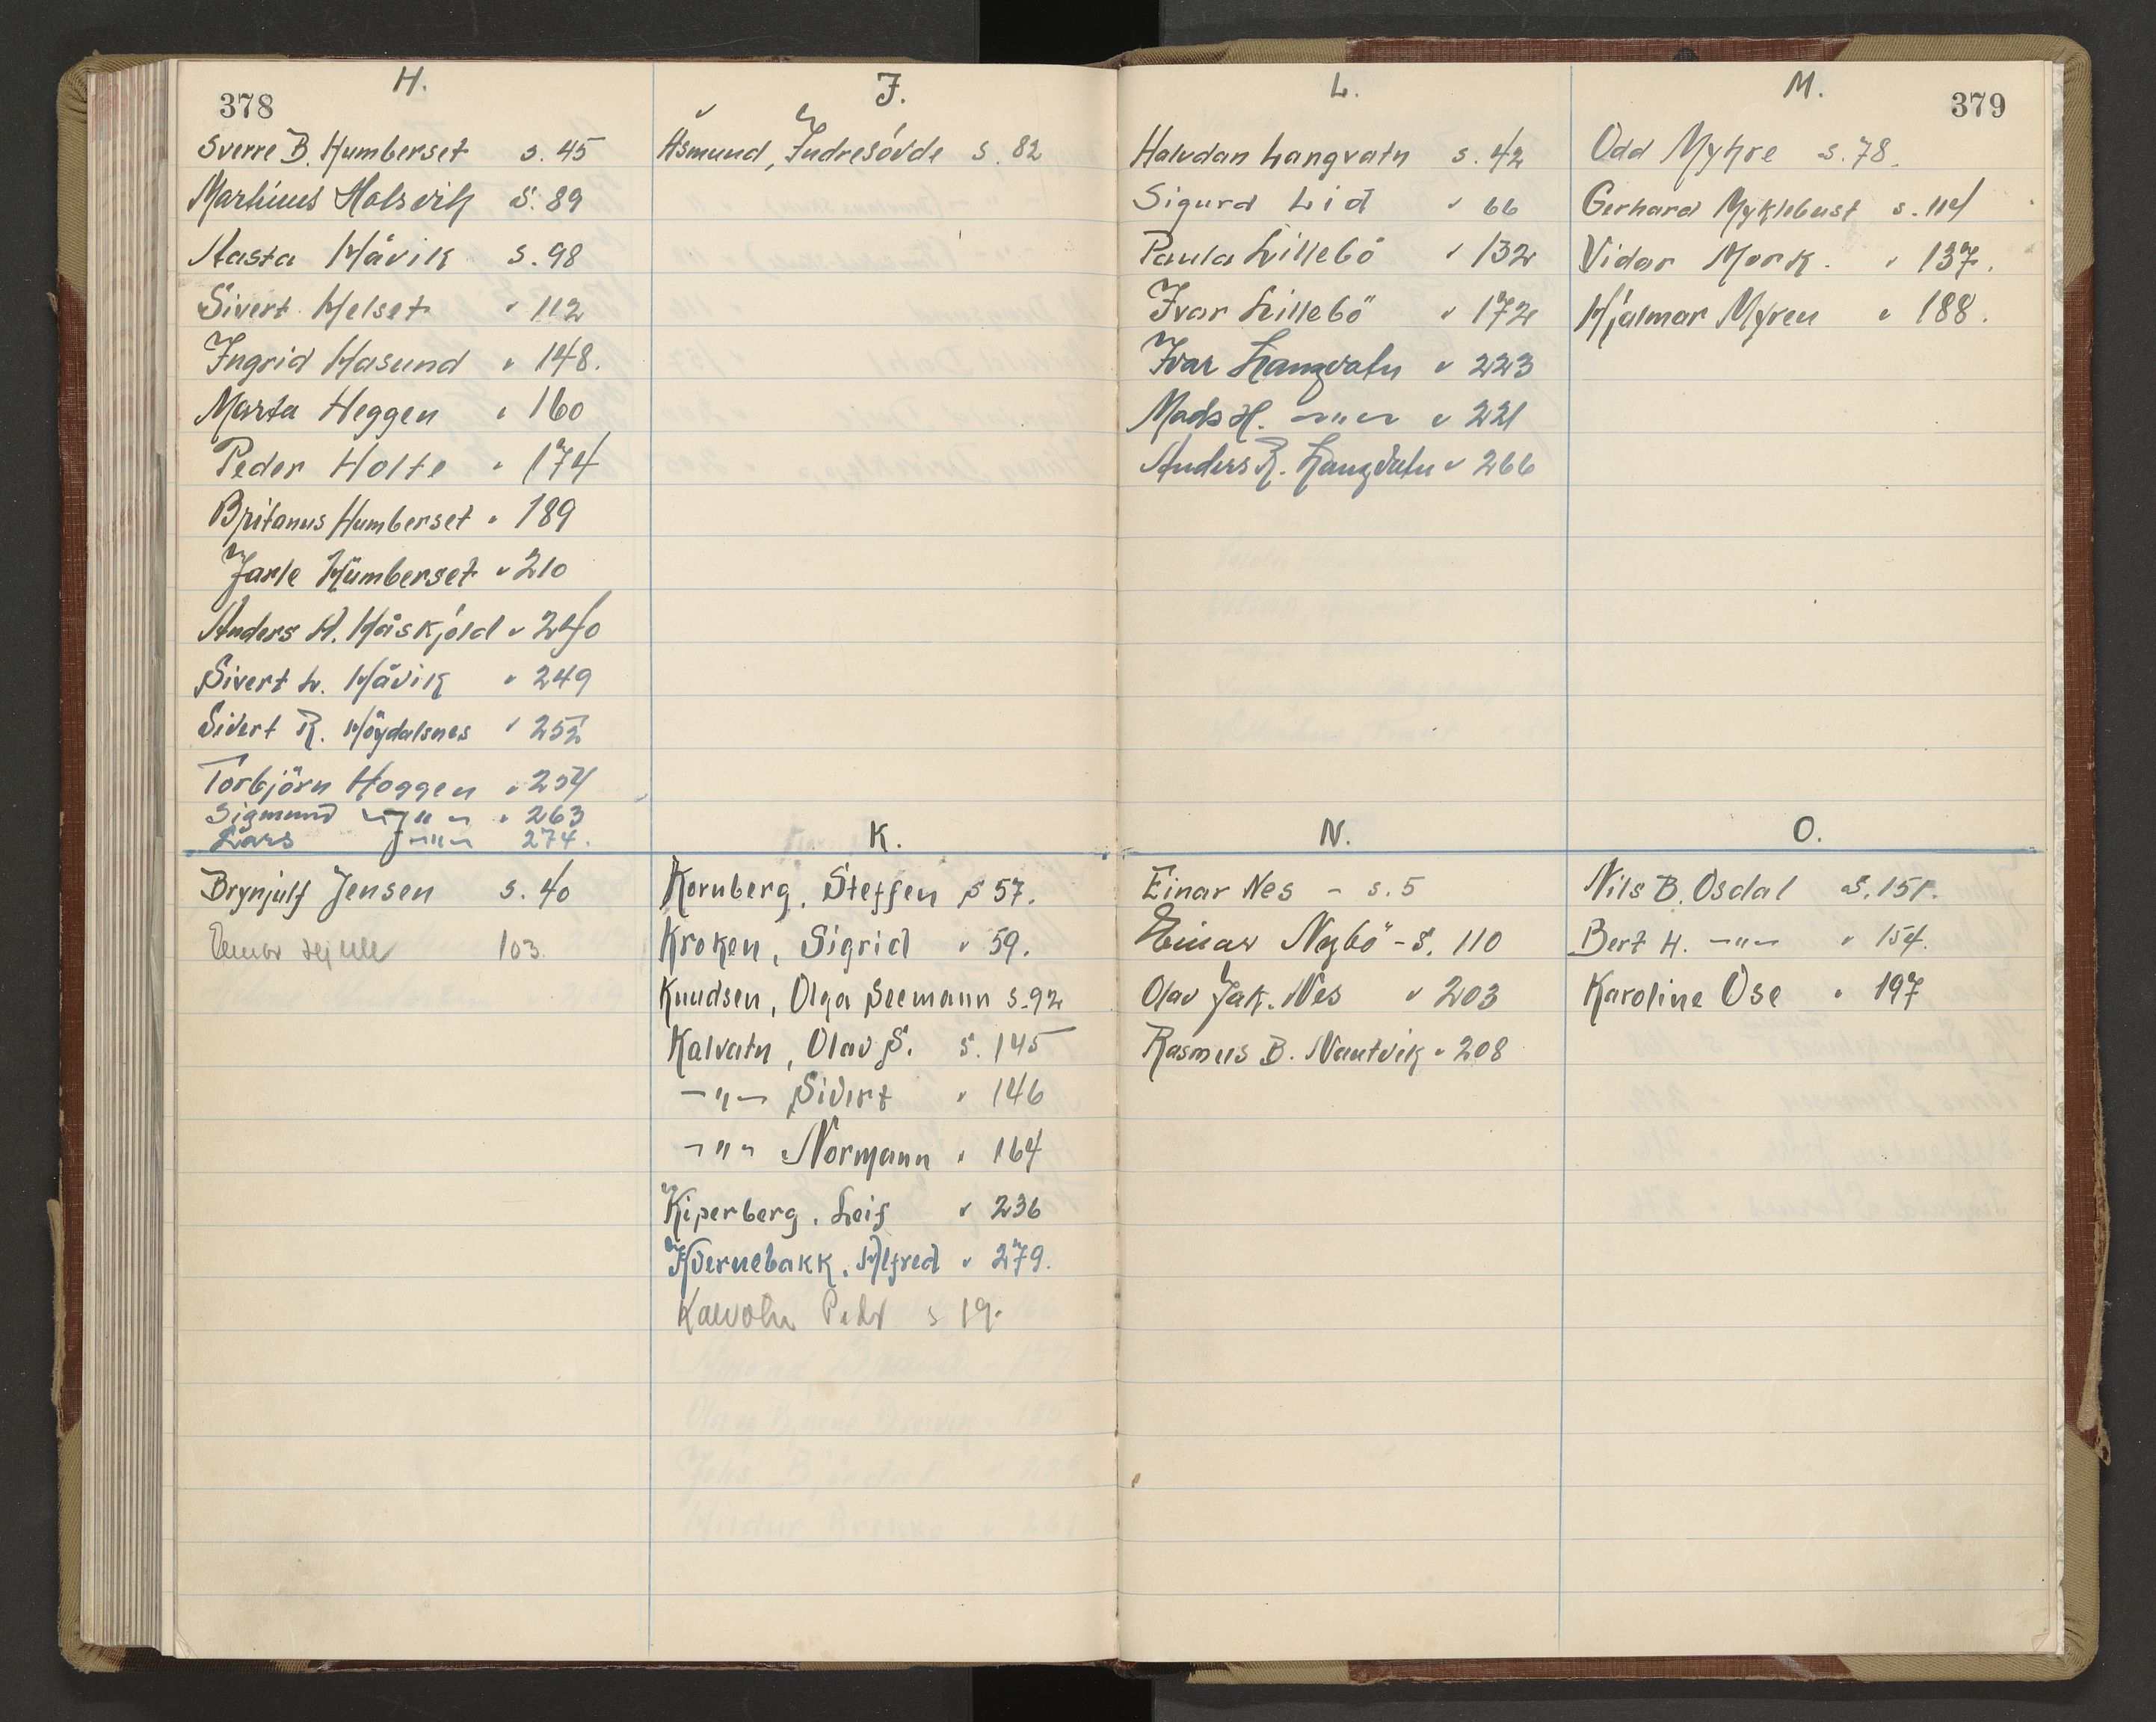 378
H.
Sverre B. Humberset s. 45
Martinus Holsvik s. 89
Aasta Håvik s. 98
Sivert Helset " 112
Ingrid Hasund " 148.
Marta Heggen " 160
Peder Holte " 174
Britanus Humberset " 189
Jarle Humberset " 210
Anders A. Håskjold " 240
Sivert L. Håvik " 249
Sivert R. Höydalsnes " 252
Torbjörn Hoggen " 254
Sigmund —"— " 263
Lars —"— 274.
Brynjulf Jensen s. 40
103.
J.
Åsmund, Indresövde s. 82
K.
Kornberg, Steffen s 57.
Kroken, Sigrid " 59.
Knudsen, Olga Seemann s. 92
Kalvatn, Olav S. s. 145
—"— Sivert " 146
—"— Normann " 164
Kiperberg, Leif " 236
Kvernebakk, Alfred " 279.
Kalvatn Peder s 19.
379
L.
Halvdan Langvatn s. 42
Sigurd Lid " 66
Paula Lillebö " 132
Ivar Lillebö " 172
Ivar Langvatn " 223
Mads H. —"— " 221
Anders R. Langvatn " 266
M.
Odd Myhre s. 78.
Gerhard Myklebust s. 114
Vidar Mork. " 137.
Hjalmar Myren " 188.
N.
Einar Nes - s. 5
Einar Nybö - s. 110
Olav Jak. Nes " 203
Rasmus B. Nautvik " 208
O.
Nils B. Osdal s. 151.
Bert H. —"— " 154.
Karoline Ose " 197